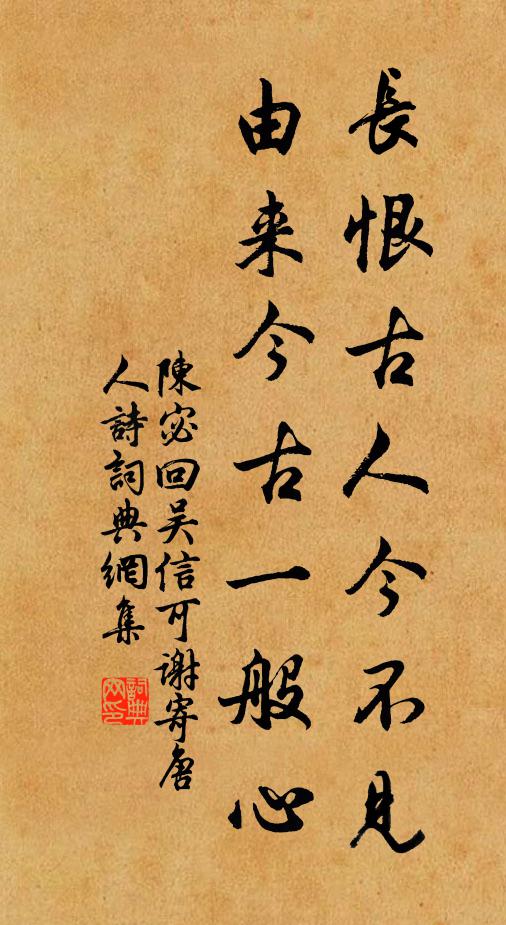 長恨古人今不見
由来今古一般心
陳宓回吴信可謝寄唐
人詩詞典網集
詞典
网印